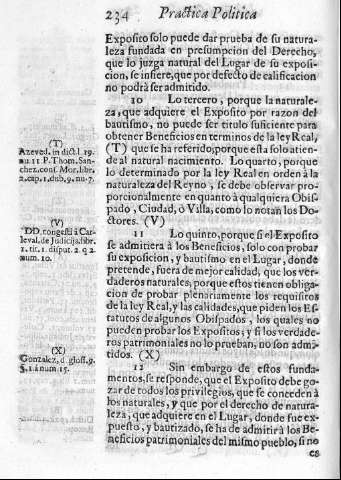 234 Practica Politica
Exposito solo puede dar prueba de su natura-
leza fundada en presumpcion del Derecho,
que lo juzga natural del Lugar de su exposi-
cion, se infiere, que por defecto de calificacion
no podrà ser admitido.
10 Lo tercero, porque la naturale-
za, que adquiere el Exposito por razon del
bautismo, no puede ser titulo suficiente para
obtener Beneficios en terminos de la ley Real,
(T) que se ha referido; porque esta solo atien-
de al natural nacimiento. Lo quarto, porque
lo determinado por la ley Real en orden à la
naturaleza del Reyno, se debe observar pro-
porcionalmente en quanto à qualquiera Obis-
pado, Ciudad, ò Villa, como lo notan los Do-
ctores. (V)
11 Lo quinto, porque si el Exposito
se admitiera à los Beneficios, solo con probar
su exposicion, y bautismo en el Lugar, donde
pretende, fuera de mejor calidad, que los ver-
daderos naturales, porque estos tienen obliga-
cion de probar plenariamente los requisitos
de la ley Real, y las calidades, que piden los Es-
tatutos de algunos Obispados, los quales no
pueden probar los Expositos; y si los verdade-
ros patrimoniales no lo prueban, no son admi-
tidos. (X)
12 Sin embargo de estos funda-
mentos, se responde, que el Exposito debe go-
zar de todos los privilegios, que se conceden à
los naturales, y que por el derecho de natura-
leza, que adquiere en el Lugar, donde fue ex-
puesto, y bautizado, se ha de admitir à los Be-
neficios patrimoniales del mismo pueblo, si no
es
(T)
Azeved. in dict. l. 19.
nu. 11 P. Thom. San-
chez. cons. Mor. libr.
2. cap. 1. dub. 9. nu. 7.
(V)
DD. congesti à Car-
leval. de Judicijs. libr.
1. tit. 1. disput. 2. q. 2
num. 10.
(X)
Gonzalez, d. glos. 9.
§. 1. à num 15.